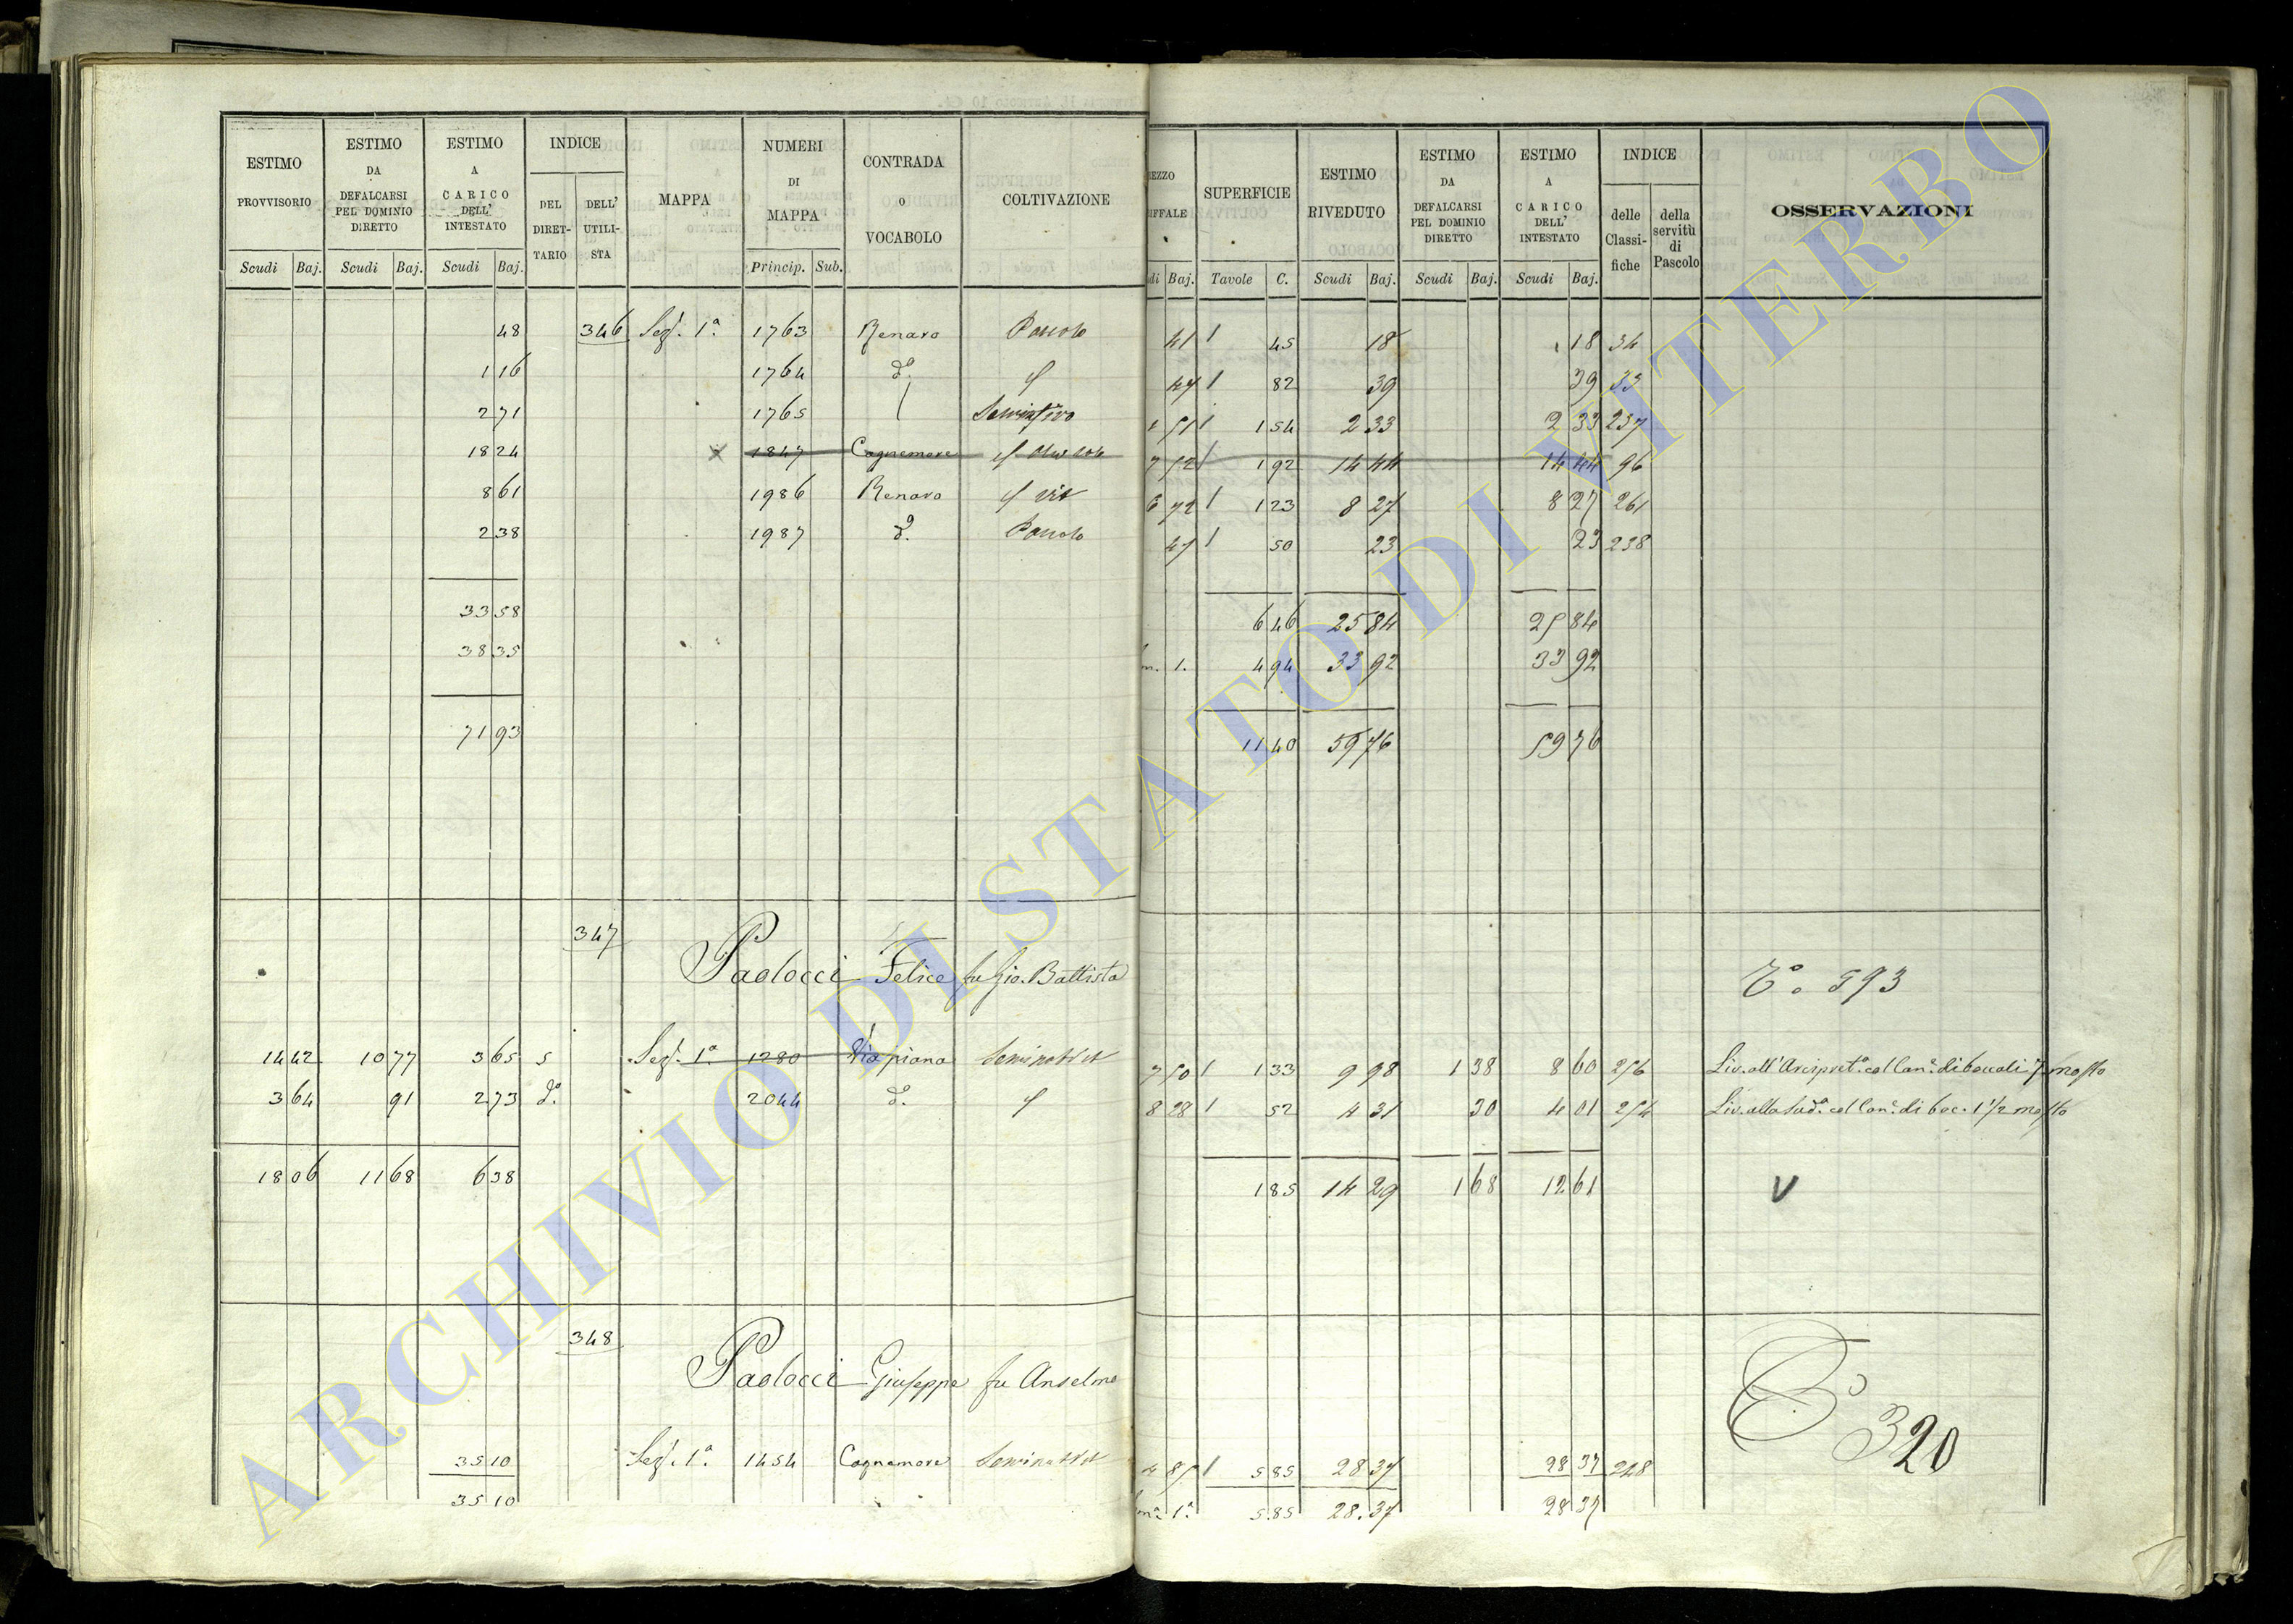 ESTIMO PROVVISORIO
ESTIMO DA DEFALCARSI PEL DOMINIO DIRETTO
ESTIMO A CARICO DELL' INTESTATO
INDICE
DEL DIRETTARIO
DELL' UTILISTA
MAPPA
NUMERI DI MAPPA
CONTRADA O VOCABOLO
COLTIVAZIONE
Scudi Baj. Scudi Baj. Scudi Baj. Princip. Sub.
SUPERFICIE
ESTIMO RIVEDUTO
ESTIMO DA DEFALCARSI PEL DOMINIO DIRETTO
ESTIMO A CARICO DELL' INTESTATO
INDICE
delle Classifiche
della servitù di Pascolo
OSSERVAZIONI
Baj. Tavole C. Scudi Baj. Scudi Baj. Scudi Baj.
48 346 Sez. 1ª 1763 Renaro Pascolo 41 1 45 18 18 34
1 16 1764 dº 47 1 82 39 39 33
2 71 1765 Seminativo 51 1 1 54 2 33 2 33 237
18 24 1847 Cagnemore 7 52 1 1 92 14 44 14 44 96
8 61 1986 Renaro vit 6 72 1 1 23 8 27 8 27 261
2 38 1987 dº Pascolo 47 1 50 23 23 238
33 58 6 46 25 84 25 84
38 35 1. 4 94 33 92 33 92
71 93 11 40 59 76 59 76
347
Paolocci Felice fu Gio. Battista
593
14 42 10 77 3 65 5 Sez. 1ª 1280 Via piana Seminat vit 7 50 1 1 33 9 98 1 38 8 60 256 Liv. all' Arcipret.ª col Can.e di boccali 7 mosto
3 64 91 2 73 dº 2044 dº 8 28 1 52 4 31 30 4 01 254 Liv. alla sudª col Can.e di boc. 1 1/2 mosto
18 06 11 68 6 38 1 85 14 29 1 68 12 61 V
348
Paolocci Giuseppe fu Anselmo
320
35 10 Sez. 1ª 1454 Cagnemore Seminat vit 1 5 85 28 37 28 37 248
35 10 1ª 5.85 28.37 28 37
ARCHIVIO DI STATO DI VITERBO